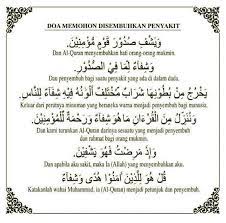 DOA MEMOHON DISEMBUHKAN PENYAKIT
وَيَشْفِ صُدُوْرَ قَوْمٍ مُّؤْمِنِيْنَ.
Dan Al-Quran menyembuhkan hati orang-orang mukmin.
وَشِفَاۤءٌ لِّمَا فِى الصُّدُوْرِ.
Dan penyembuh bagi suatu penyakit yang ada di dalam dada.
يَخْرُجُ مِنْ بُطُوْنِهَا شَرَابٌ مُّخْتَلِفٌ اَلْوَنُهُ فِيْهِ شِفَاۤءٌ لِلنَّاسِ.
Keluar dari perutnya minuman yang beraneka warna menjadi penyembuh bagi manusia.
وَنُنَزِّلُ مِنَ الْقُرْءَانِ مَا هُوَ شِفَاۤءٌ وَرَحْمَةٌ لِّلْمُؤْمِنِيْنَ.
Dan kami turunkan Al-Quran darinya sesuatu yang menjadi penyembuh dan rahmat bagi orang-orang mukmin.
وَإِذَ مَرِضْتُ فَهُوَ يَشْفِيْنِ.
Dan apabila aku sakit, maka Ia (Allah) yang menyembuhkan aku.
قُلْ هُوَ لِلَّذِيْنَ اٰمَنُوْا هُدًى وَشِفَاۤءٌ
Katakanlah wahai Muhammad, ia (Al-Quran) menjadi petunjuk dan penyembuh.